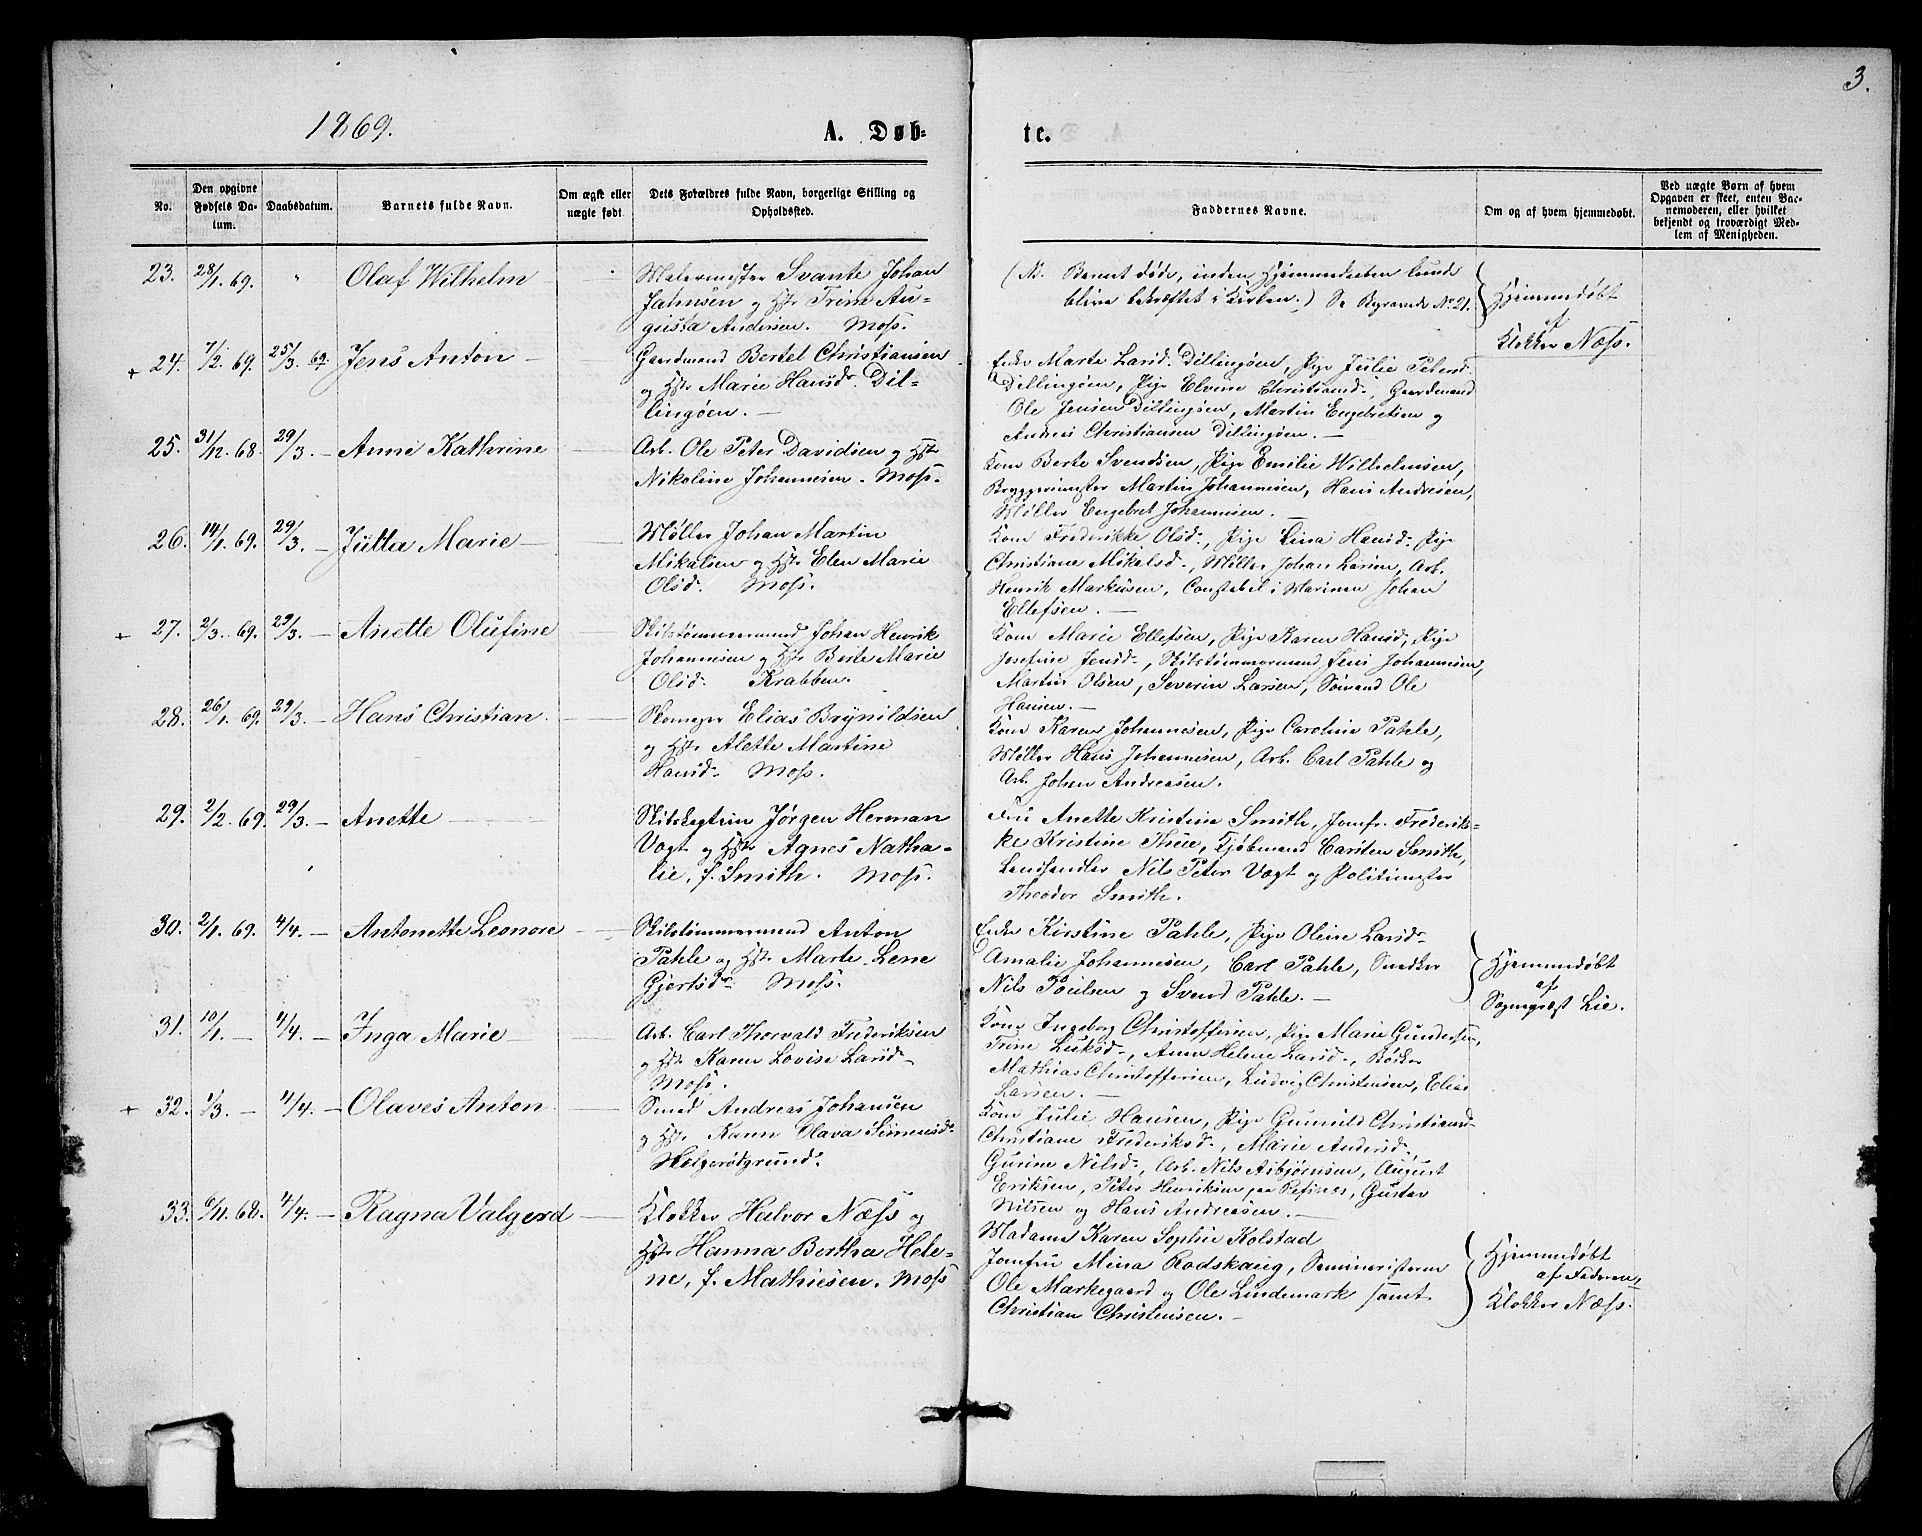 3.
1869.
A. Døb-
te.
No.
Den opgivne Fødsels Datum.
Daabsdatum.
Barnets fulde Navn.
Om ægte eller uægte født.
Dets Forældres fulde Navn, borgerlige Stilling og Opholdssted.
Faddernes Navne.
Om og af hvem hjemmedøbt.
Ved uægte Børn af hvem Opgaven er skeet, enten Barnemoderen, eller hvilket bekjendt og troværdigt Medlem af Menigheden.
23. 28/1. 69. " Olaf Wilhelm
Malermester Svante Johan
Jahnsen og Hst. Trine Au-
gusta Andersen. Moss.
(NB. Barnet døde, inden Hjemmedaaben kunde
blive bekræftet i Kirken.) Se Begravede No 21.
Hjemmedøbt
af
Klokker Næss.
+ 24. 7/2. 69. 25/3. 69. Jens Anton
Gaardmand Bertel Christiansen
og Hst. Marie Hansd. Dil-
lingøen.
Enke Marte Larsd. Dillingøen, Pige Julie Petersd.
Dillingøen, Pige Elvine Christiansd., Gaardmand
Ole Jensen Dillingøen, Martin Engebretsen og
Andreas Christiansen Dillingøen.
25. 31/12. 68. 29/3. Anne Kathrine
Arb. Ole Peter Davidsen og Hst.
Nikoline Johannesen. Moss.
Kone Berte Svendsen, Pige Emilie Wilhelmsen,
Bryggermester Martin Johannesen, Hans Andresen,
Møller Engebret Johannesen.
26. 14/1. 69. 29/3. Jutta Marie
Møller Johan Martin
Mikalsen og Hst. Elen Marie
Olsd. Moss.
Kone Frederikke Olsd., Pige Lina Hansd. Pige
Christiane Mikalsd., Møller Johan Larsen, Arb.
Henrik Markusen, Constabel i Marinen Johan
Ellefsen.
+ 27. 2/3. 69. 29/3. Anette Olufine
Skibstømmermand Johan Henrik
Johannesen og Hst. Berte Marie
Olsd. Krabben.
Kone Marie Ellefsen, Pige Karen Hansd., Pige
Josefine Jensd., Skibstømmermand Jens Johannesen,
Martin Olsen, Severin Larsen, Sømand Ole
Hansen.
28. 26/1. 69. 29/3. Hans Christian
Skomager Elias Brynildsen
og Hst. Alette Martine
Hansd. Moss.
Kone Karen Johannesen, Pige Caroline Pahle,
Møller Hans Johannesen, Arb. Carl Pahle og
Arb. Johan Andreasen.
29. 2/2. 69. 29/3. Anette
Skibskaptein Jørgen Herman
Vogt og Hst. Agnes Natha-
lie, f. Smith. Moss.
Fru Anette Kristine Smith, Jomfr. Frederik-
ke Kristine Thue, Kjøbmand Carsten Smith,
Landhandler Nils Peter Vogt og Politimester
Theodor Smith.
30. 2/1. 69. 4/4. Antonette Leonore
Skibstømmermand Anton
Pahle og Hst. Marte Lene
Gjertsd. Moss.
Enke Kirstine Pahle, Pige Oline Larsd.
Amalie Johannesen, Carl Pahle, Snedker
Nils Poulsen og Svend Pahle.
Hjemmedøbt
af
Sognepræst Lie.
31. 10/1. 4/4. Inga Marie
Arb. Carl Thorvald Frederiksen
og Hst. Karen Lovise Larsd.
Moss.
Kone Ingeborg Christoffersen, Pige Marie Gundersen,
Trine Luksd., Anne Helene Larsd., Bøsker
Mathias Christoffersen, Ludvig Christensen, Elias
Larsen.
+ 32. 1/3. 4/4. Olaves Anton
Smed Andreas Johansen
og Hst. Karen Olava Simensd.
Helgerødgrund.
Kone Julie Hansen, Pige Gunnild Christiansd.
Christiane Frederiksd., Marie Andersd.,
Gurine Nilsd., Arb. Nils Asbjørnsen, August
Eriksen, Peter Henriksen paa Refsnes, Gustav
Nilsen og Hans Andreasen.
33. 6/11. 68. 4/4. Ragna Valgerd
Klokker Halvor Næss og
Hst. Hanna Bertha Hele-
ne, f. Mathiesen. Moss
Madame Karen Sophie Kolstad
Jomfru Mina Rodskaug, Seminaristerne
Ole Markegaard og Ole Lindemark samt
Christian Christensen.
Hjemmedøbt
af Faderen,
Klokker Næss.